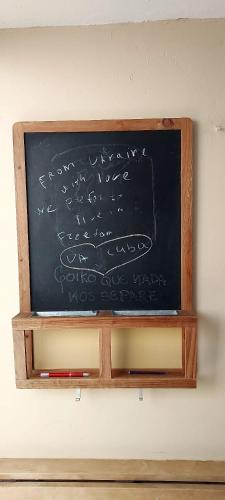 From Ukraine
with love
We prefer to
live in
Freedom
UA Cuba
GOIKO QUE NADA
NOS SEPARE